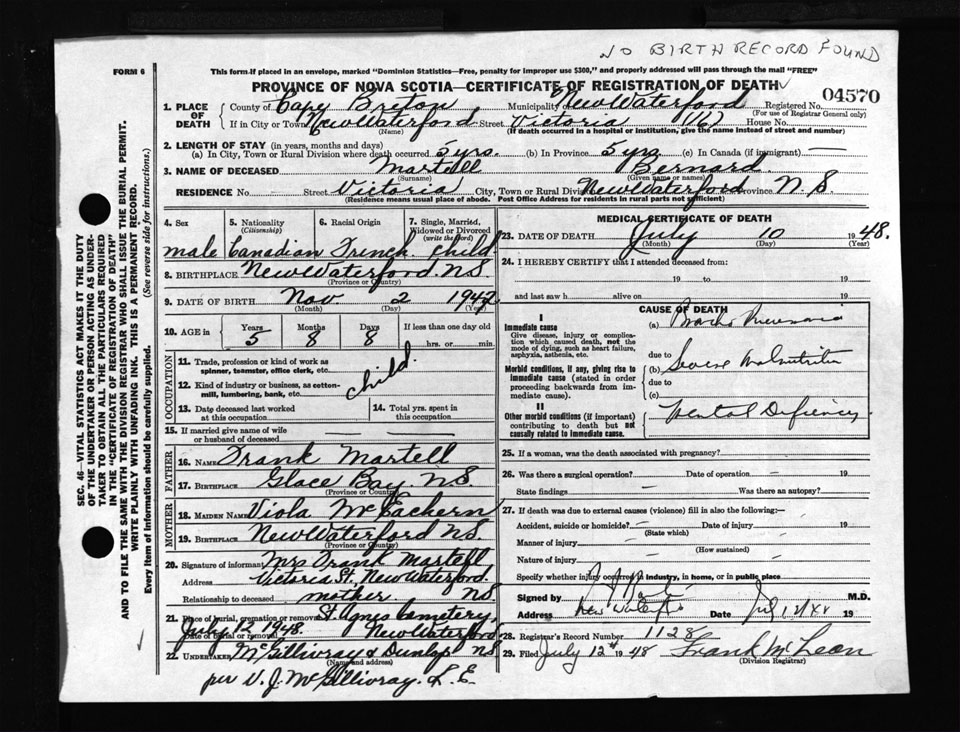 NO BIRTH RECORD FOUND
FORM 6
This form if placed in an envelope, marked "Dominion Statistics—Free, penalty for improper use $300," and properly addressed will pass through the mail "FREE"
PROVINCE OF NOVA SCOTIA—CERTIFICATE OF REGISTRATION OF DEATH
04570
1. PLACE OF DEATH { County of Cape Breton Municipality New Waterford Registered No.
(For use of Registrar General only)
If in City or Town New Waterford Street Victoria House No.
(Name) (If death occurred in a hospital or institution, give the name instead of street and number)
2. LENGTH OF STAY (in years, months and days)
(a) In City, Town or Rural Division where death occurred 5 yrs. (b) In Province 5 yrs (c) In Canada (if immigrant) —
3. NAME OF DECEASED Martell Bernard
(Surname) (Given name or names)
RESIDENCE No Street Victoria City, Town or Rural Division New Waterford Province N.S.
(Residence means usual place of abode. Post Office Address for residents in rural parts not sufficient)
4. Sex 5. Nationality (Citizenship) 6. Racial Origin 7. Single, Married, Widowed or Divorced (write the word)
male Canadian French child
8. BIRTHPLACE New Waterford N.S.
(Province or Country)
9. DATE OF BIRTH Nov 2 1942
(Month) (Day) (Year)
10. AGE in Years Months Days If less than one day old
5 8 8 hrs. or min.
OCCUPATION
11. Trade, profession or kind of work as spinner, teamster, office clerk, etc.
child.
12. Kind of industry or business, as cotton-mill, lumbering, bank, etc.
13. Date deceased last worked at this occupation
14. Total yrs. spent in this occupation
15. If married give name of wife or husband of deceased — —
FATHER
16. NAME Frank Martell
17. BIRTHPLACE Glace Bay N.S.
(Province or Country)
MOTHER
18. MAIDEN NAME Viola McEachern
19. BIRTHPLACE New Waterford N.S.
(Province or Country)
20. Signature of informant Mrs Frank Martell
Address Victoria St, New Waterford.
Relationship to deceased mother N.S
21. Place of burial, cremation or removal St Agnes Cemetery,
Date of burial or removal July 12 1948. New Waterford
22. Undertaker McGillivray & Dunlap N.S
(Name and address)
per V. J. McGillivray. L.E.
MEDICAL CERTIFICATE OF DEATH
23. DATE OF DEATH July 10 1948.
(Month) (Day) (Year)
24. I HEREBY CERTIFY that I attended deceased from:
19 to 19
and last saw h alive on 19
CAUSE OF DEATH
I
Immediate cause
Give disease, injury or complication which caused death, not the mode of dying, such as heart failure, asphyxia, asthenia, etc.
(a)
due to
Morbid conditions, if any, giving rise to immediate cause (stated in order proceeding backwards from immediate cause).
Severe Malnutrition
due to
(c)
II
Other morbid conditions (if important) contributing to death but not causally related to immediate cause.
Mental Deficiency
25. If a woman, was the death associated with pregnancy? —
26. Was there a surgical operation? — Date of operation — 19
State findings — Was there an autopsy?
27. If death was due to external causes (violence) fill in also the following:—
Accident, suicide or homicide? — Date of injury 19
(State which)
Manner of injury
(How sustained)
Nature of injury —
Specify whether injury occurred in industry, in home, or in public place
Signed by M.D.
Address New Waterford Date 19
28. Registrar's Record Number 1128
29. Filed July 12th 1948 Frank McLean
(Division Registrar)
SEC. 46—VITAL STATISTICS ACT MAKES IT THE DUTY
OF THE UNDERTAKER OR PERSON ACTING AS UNDER-
TAKER TO OBTAIN ALL THE PARTICULARS REQUIRED
IN THE "CERTIFICATE OF REGISTRATION OF DEATH"
AND TO FILE THE SAME WITH THE DIVISION REGISTRAR WHO SHALL ISSUE THE BURIAL PERMIT.
WRITE PLAINLY WITH UNFADING INK. THIS IS A PERMANENT RECORD.
Every item of information should be carefully supplied. (See reverse side for instructions.)